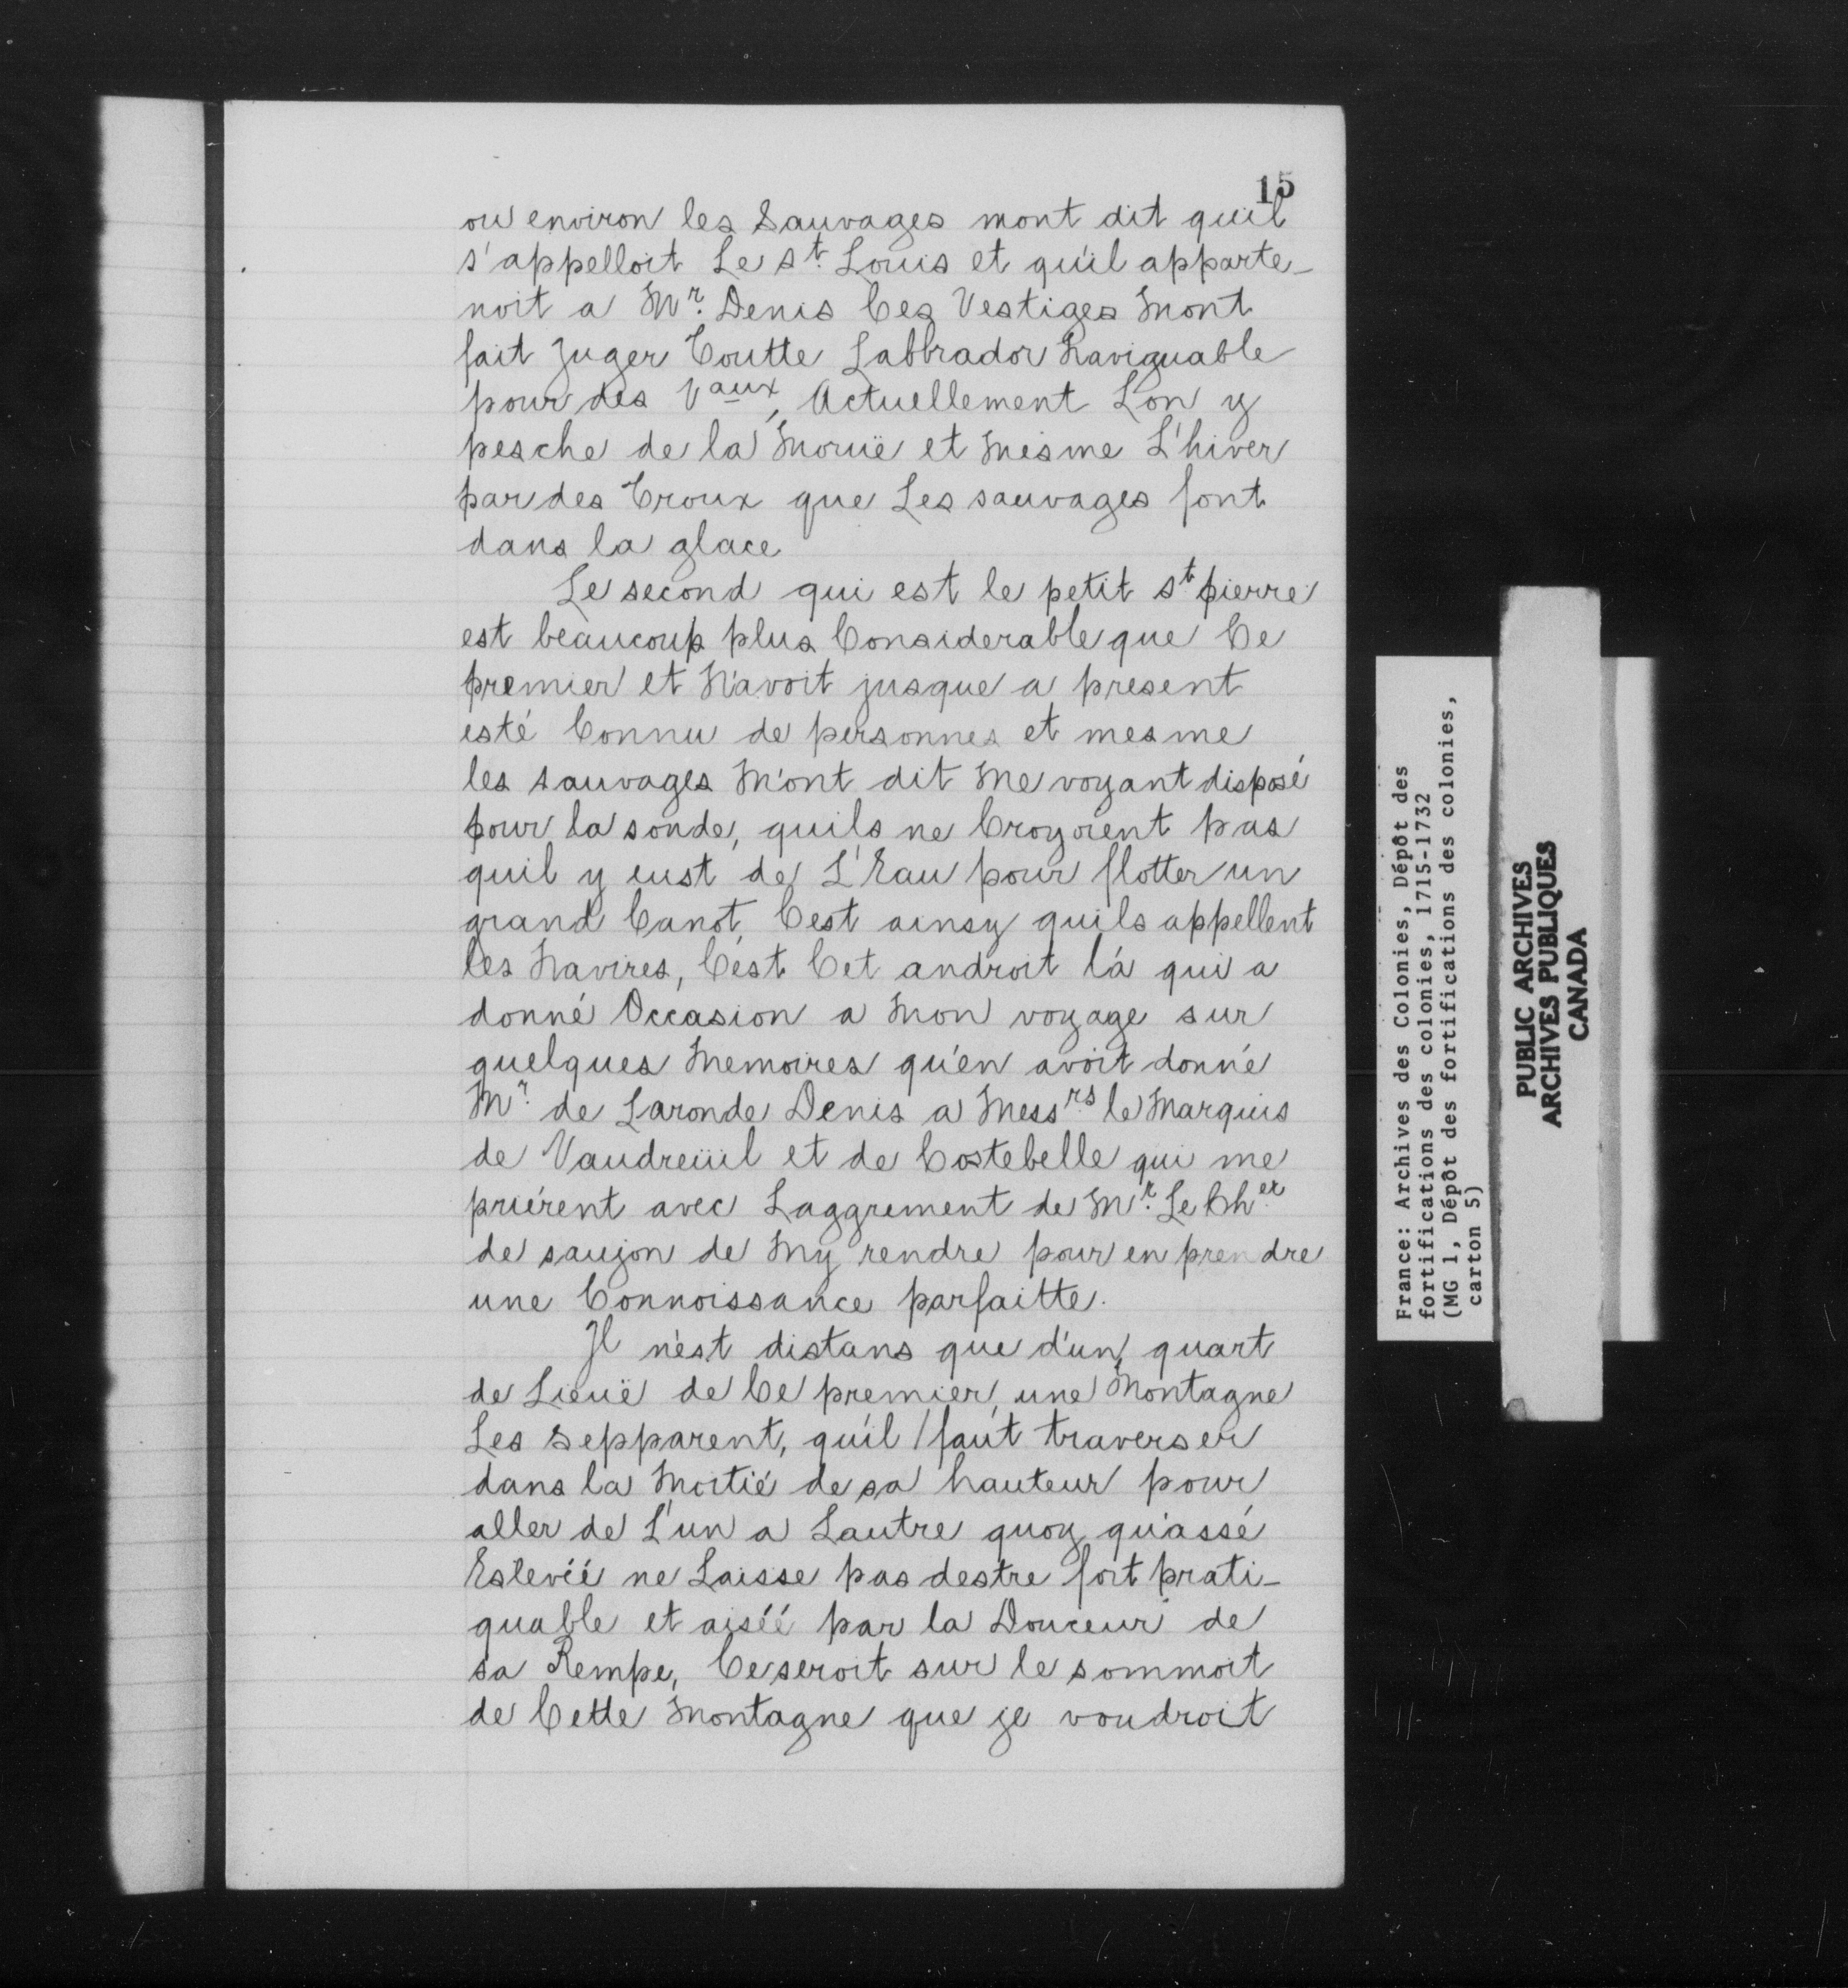 15
ou environ les Sauvages mont dit quil
s'appelloit Le St. Louis et qu'il apparte-
noit a Mr. Denis Ces Vestiges Mont
fait Juger Toutte Labbrador Naviguable
pour des Vaux, Actuellement L'on y
pesche de la Moruë et Mesme L'hiver
par des Troux que Les sauvages font
dans la glace
Le second qui est le petit St pierre
est beaucoup plus Considerable que Ce
premier et N'avoit jusque a present
esté Connu de personnes et mesme
les sauvages M'ont dit Me voyant disposé
pour la sonde, quils ne Croyoient pas
quil y eust de L'Eau pour flotter un
grand Canot, C'est ainsy quils appellent
les Navires, C'est Cet androit là qui a
donné Occasion a Mon voyage sur
quelques Memoires qu'en avoit donné
Mr. de Laronde Denis a Messrs. le Marquis
de Vaudreüil et de Costebelle qui me
priérent avec Laggrement de Mr. Le Cher.
de saujon de My rendre pour en prendre
une Connoissance parfaitte.
Il n'est distans que d'un quart
de Lieuë de Ce premier, une Montagne
Les Sepparent, qu'il faut traverser
dans la Moitié de sa hauteur pour
aller de L'un a Lautre quoy qu'assé
Eslevéé ne Laisse pas destre fort prati-
quable et aiséé par la Douceur de
sa Rempe, Ce seroit sur le sommoit
de Cette Montagne que je voudroit
France: Archives des Colonies, Dépôt des
fortifications des colonies, 1715-1732
(MG 1, Dépôt des fortifications des colonies,
carton 5)
PUBLIC ARCHIVES
ARCHIVES PUBLIQUES
CANADA